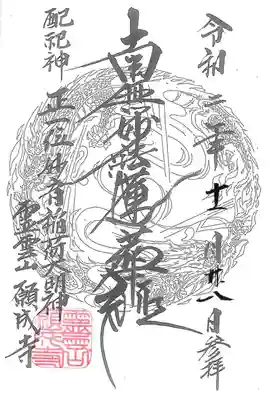 令和二年十一月廿八日参拝
南無妙法蓮華経
配祀神
正一位 稲荷大明神
靈雲山 願成寺